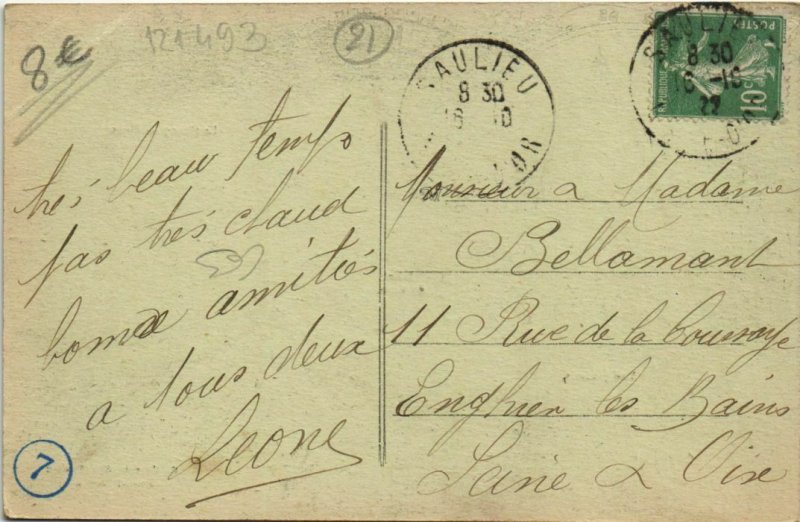 8€
121493
21
SAULIEU
8 30
16 10
D'OR
SAULIEU
8 30
16 - 10
22
E-D'OR
POSTES
10c
très beau temps
pas très chaud
bonnes amitiés
a tous deux
Leone
7
Monsieur & Madame
Bellamant
11 Rue de la Coussaye
Enghien les Bains
Seine & Oise